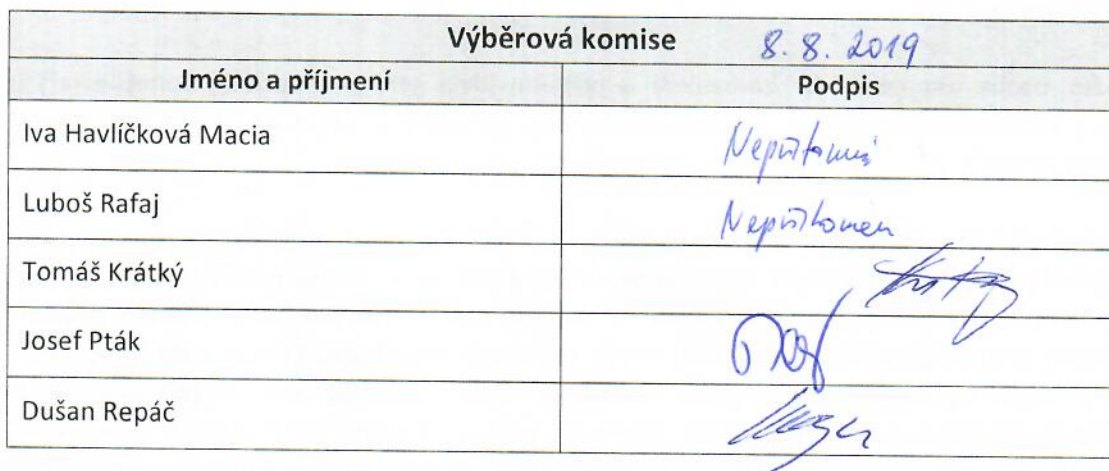 Výběrová komise 8. 8. 2019
Jméno a příjmení Podpis
Iva Havlíčková Macia Nepřítomná
Luboš Rafaj Nepřítomen
Tomáš Krátký Krátký
Josef Pták
Dušan Repáč